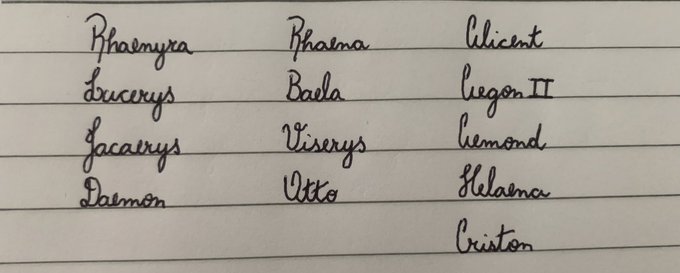 Rhaenyra Rhaena Alicent
Lucerys Baela Aegon II
Jacaerys Viserys Aemond
Daemon Otto Helaena
Criston